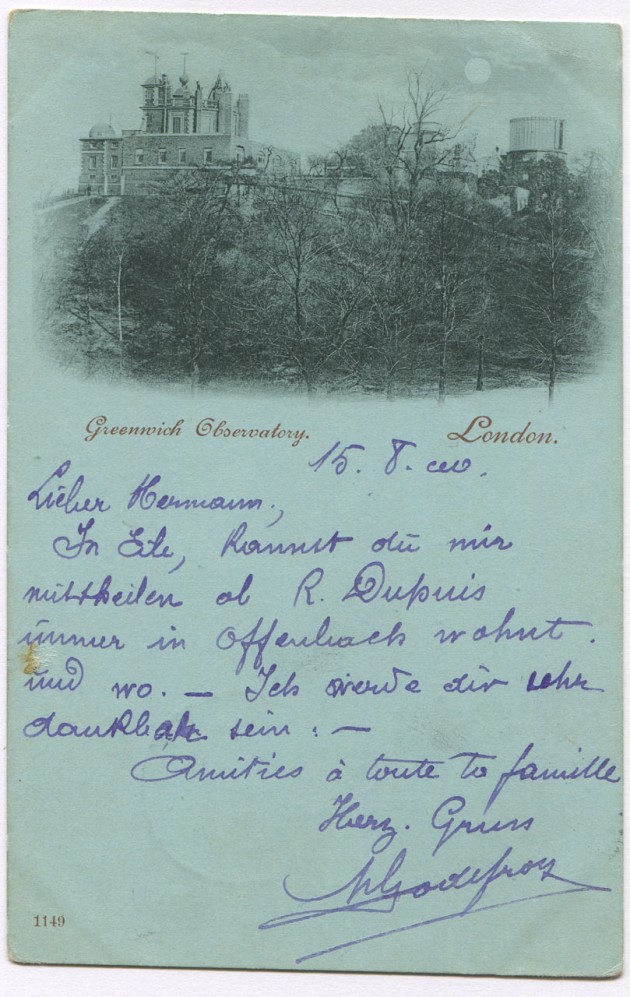 Greenwich Observatory. London.
15. 8.
Lieber Hermann,
In Eile, kannst du mir
mittheilen ob R. Dupuis
immer in Offenbach wohnt.
und wo. — Ich werde dir sehr
dankbar sein. —
Amitiés à toute ta famille
Herz. Gruss
Godefroy
1149